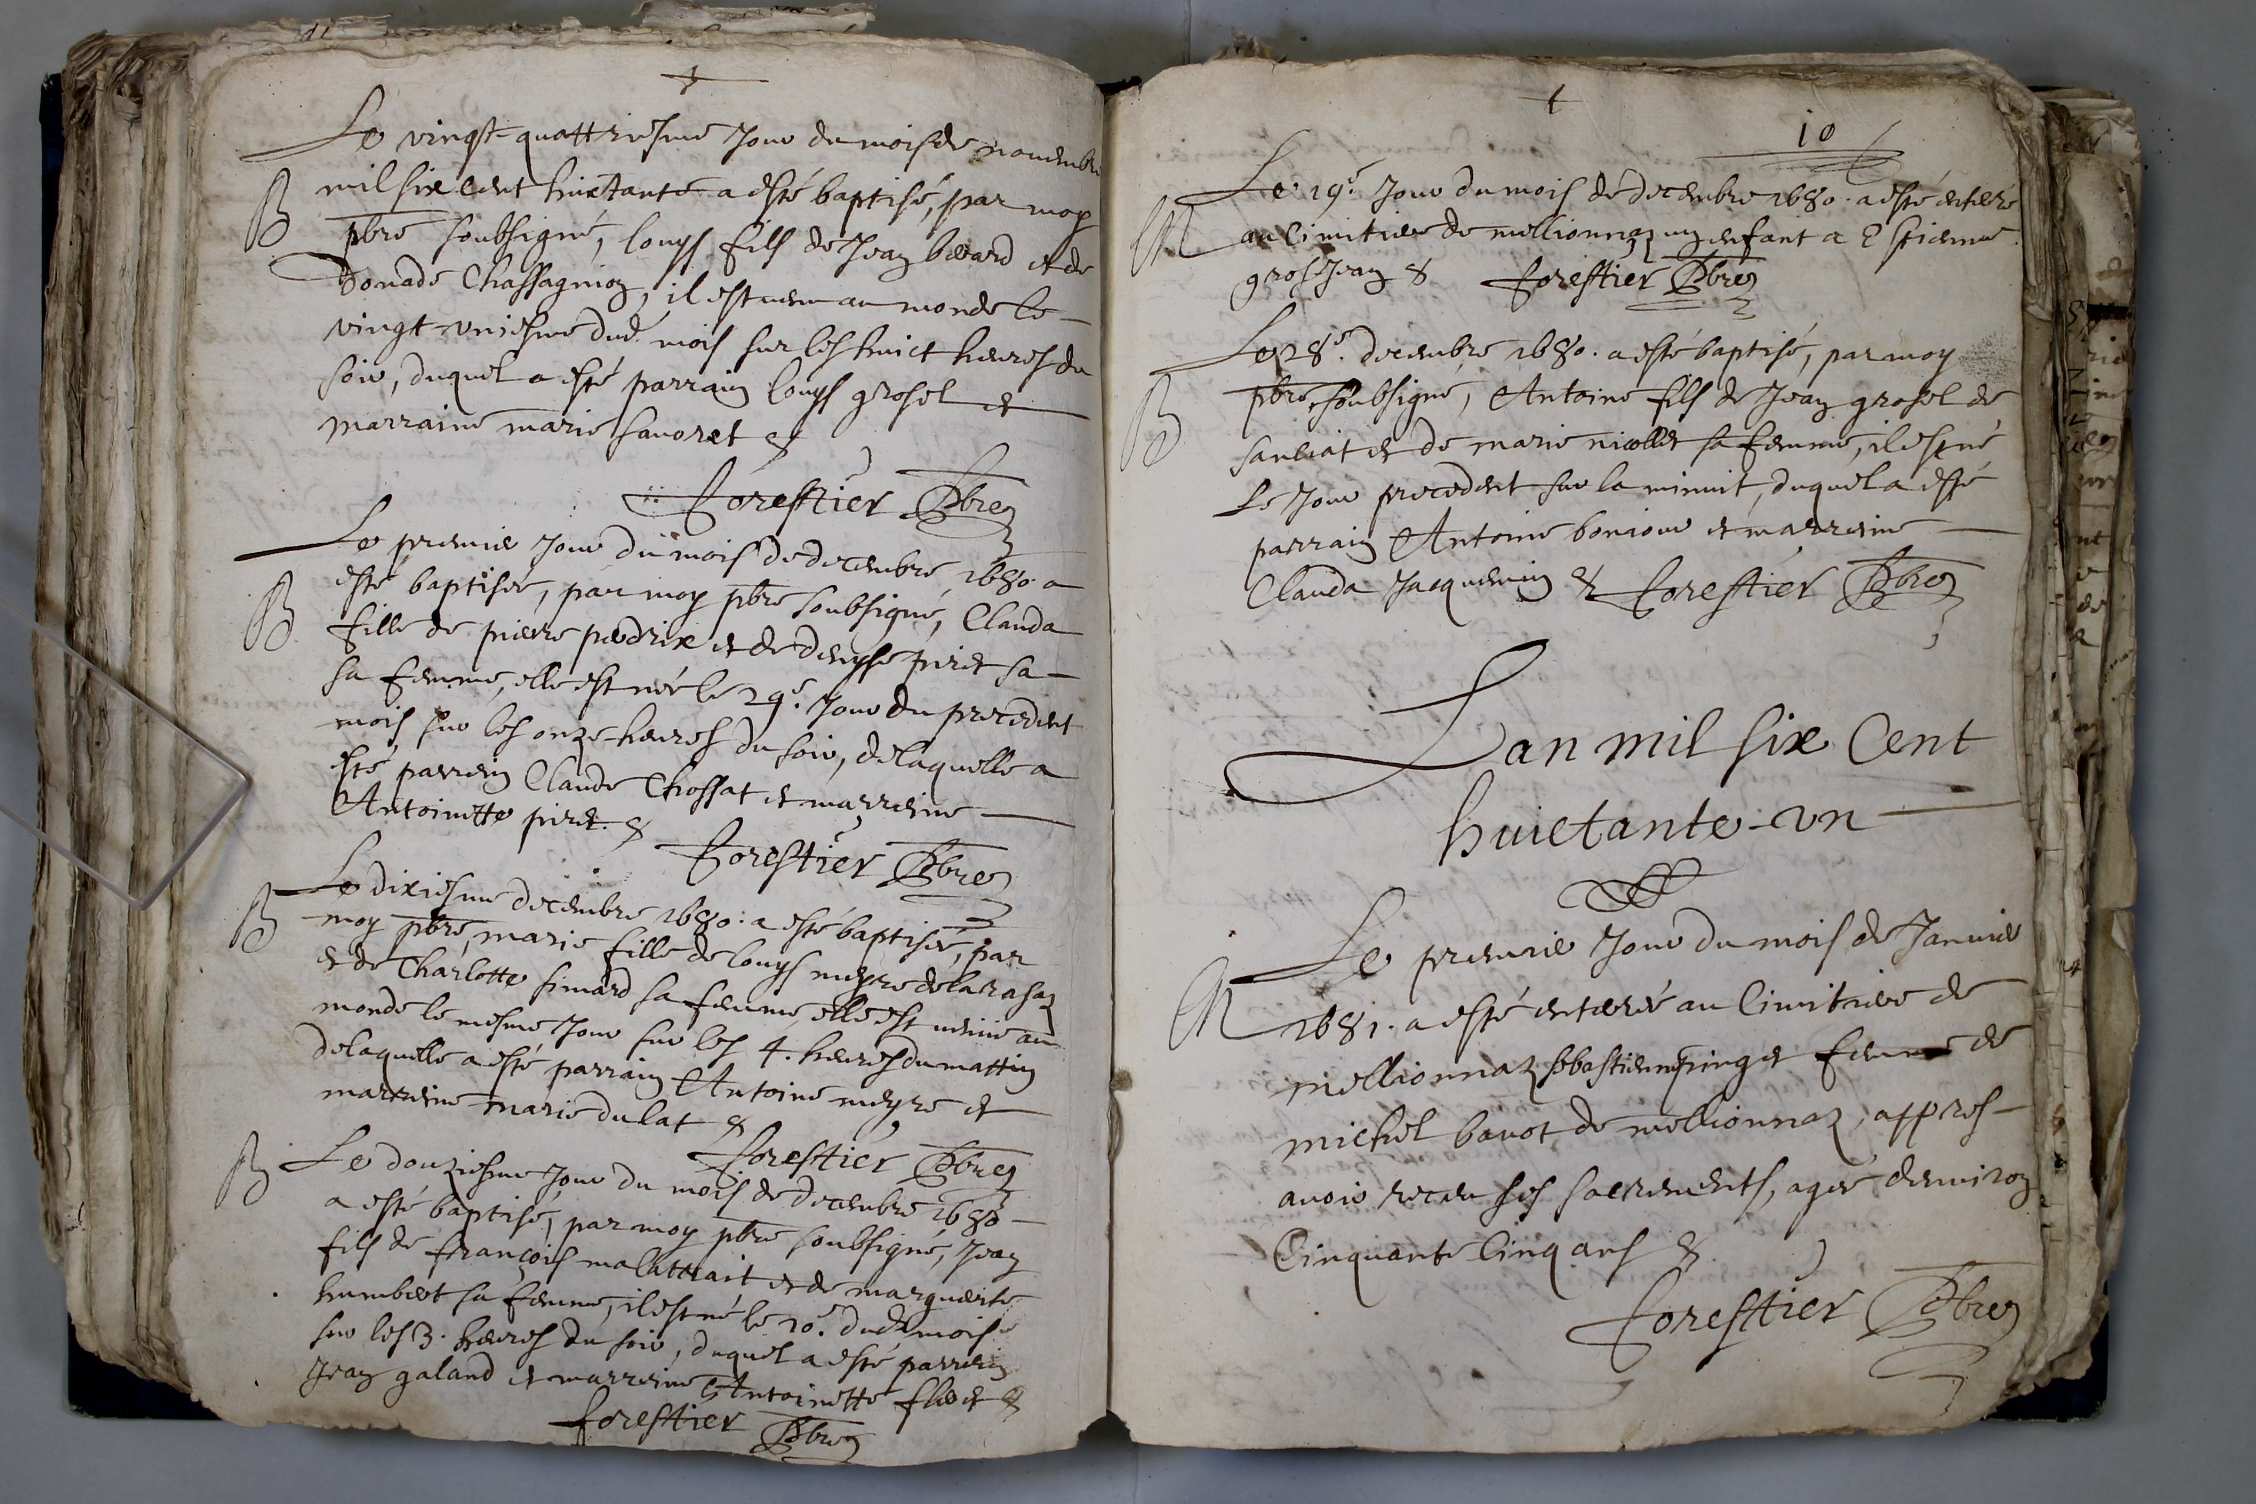 Le vingt-quattriesme Jour du mois de novembre
B mil six cent huictante a esté baptisé, par moy
pbre soubsigné, louys fils de Jean berard et de
Donade Chassagnion, il est venu au monde le
vingt-uniesme dud. mois sur les huict heures du
soir, duquel a esté parrain louys grosel et
marraine marie sauoret &
forestier Pbre
Le premier Jour du mois de decembre 1680 a
B esté baptisée, par moy pbre soubsigné, Clauda
fille de pierre perdrix et de denyse piret sa
sa femme, elle est née le 29e. Jour du precedent
mois sur les onze heures du soir, de laquelle a
esté parrein Claude Chossat et marreine
Antoinette piret. &
forestier Pbre
Le dixiesme decembre 1680. a esté baptisée, par
B moy pbre, marie fille de louys meyre
et de Charlotte simard sa femme, elle est venüe au
monde le mesme Jour sur les 4. heures du mattin
de laquelle a esté parrain Antoine meyre et
marreine marie dulat &
forestier Pbre
B Le douziesme Jour du mois de decembre 1680
a esté baptisé, par moy pbre soubsigné, Jean
fils de françois malattrait et de marguerite
humbert sa femme, il est né le 10e. dud. mois
sur les 3. heures du soir, duquel a esté parrein
Jean galand et marreine Antoinette &
forestier Pbre
10
Le 19e. Jour du mois de decembre 1680. a esté enterré
M au cimitiere de mellionnaz un enfant a Estienne
gros Jean & forestier Pbre
Le 28e. decembre 1680. a esté baptisé, par moy
B pbre, soubsigné, Antoine fils de Jean grosel de
sanciat et de marie nicollet sa femme, il est né
Le Jour precedent sur la minuit, duquel a esté
parrain Antoine bonjour et marreine
Clauda Jacquemin & forestier Pbre
Lan mil six Cent
huictante-un
Le premier Jour du mois de Janvier
M 1681. a esté enterrée au Cimitiere de
mellionnaz sebastienne pinget femme de
michel bauot de mellionnaz, appres
auoir receu ses sacrements, agée d'environ
Cinquante Cinq ans &
forestier Pbre